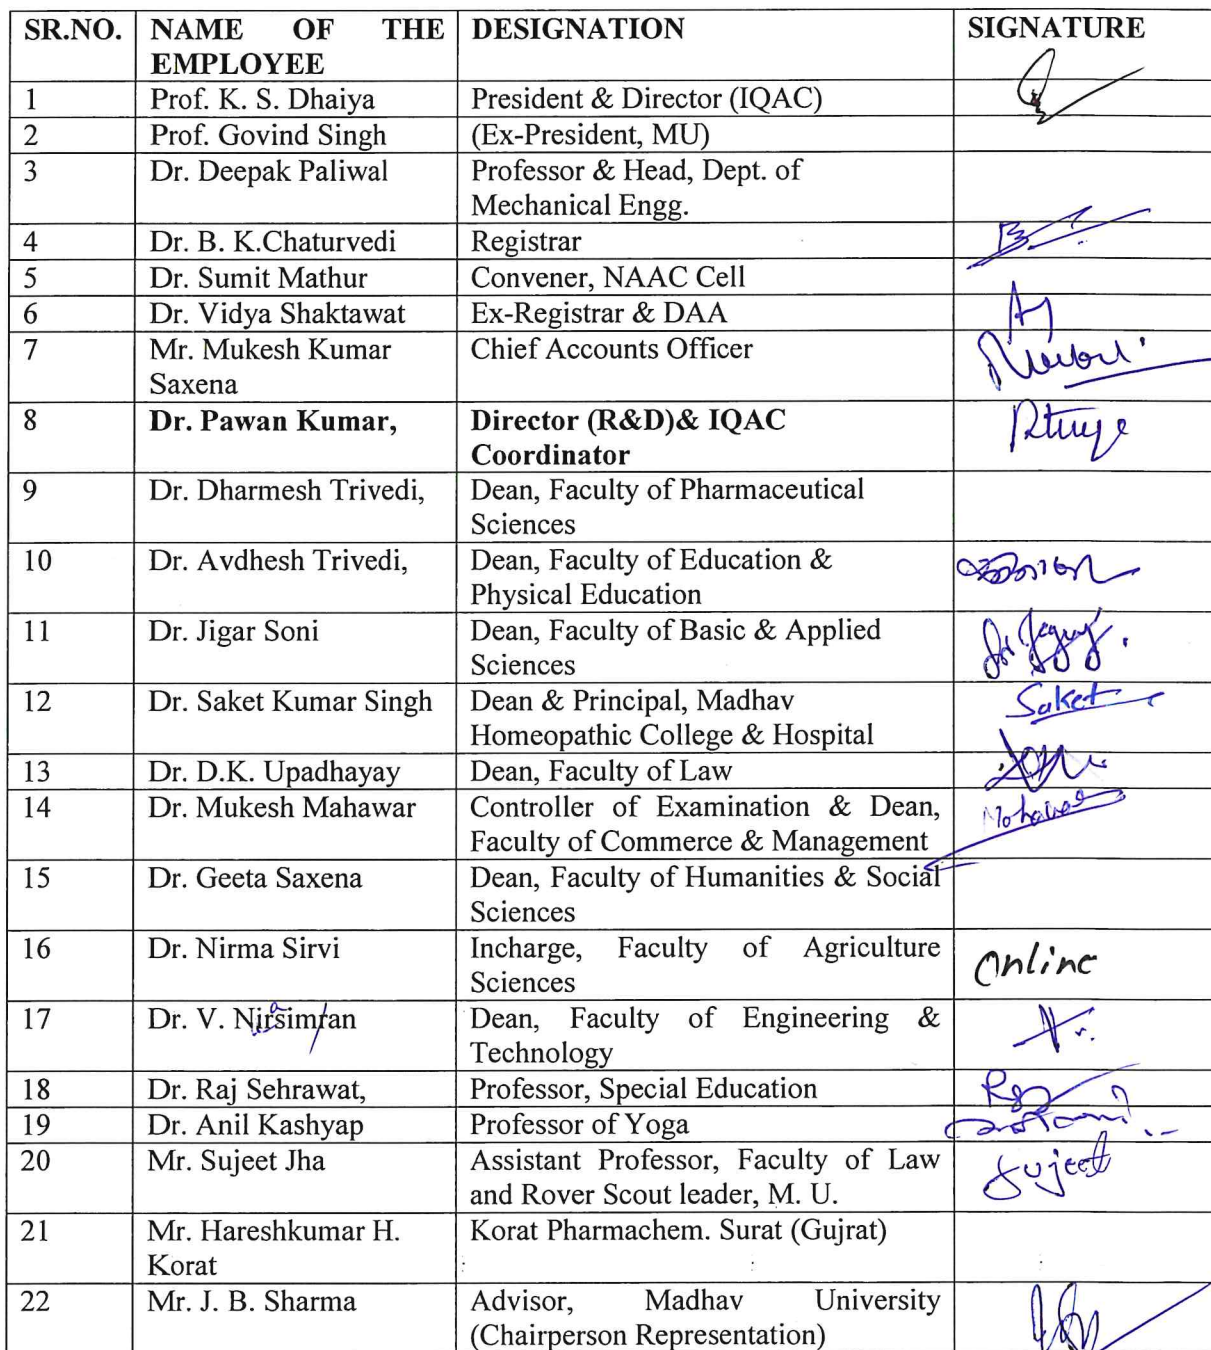 SR.NO. NAME OF THE DESIGNATION SIGNATURE
EMPLOYEE
1 Prof. K. S. Dhaiya President & Director (IQAC)
2 Prof. Govind Singh (Ex-President, MU)
3 Dr. Deepak Paliwal Professor & Head, Dept. of
Mechanical Engg.
4 Dr. B. K.Chaturvedi Registrar
5 Dr. Sumit Mathur Convener, NAAC Cell
6 Dr. Vidya Shaktawat Ex-Registrar & DAA
7 Mr. Mukesh Kumar Chief Accounts Officer
Saxena
8 Dr. Pawan Kumar, Director (R&D)& IQAC
Coordinator
9 Dr. Dharmesh Trivedi, Dean, Faculty of Pharmaceutical
Sciences
10 Dr. Avdhesh Trivedi, Dean, Faculty of Education &
Physical Education
11 Dr. Jigar Soni Dean, Faculty of Basic & Applied
Sciences
12 Dr. Saket Kumar Singh Dean & Principal, Madhav Saket
Homeopathic College & Hospital
13 Dr. D.K. Upadhayay Dean, Faculty of Law
14 Dr. Mukesh Mahawar Controller of Examination & Dean,
Faculty of Commerce & Management
15 Dr. Geeta Saxena Dean, Faculty of Humanities & Social
Sciences
16 Dr. Nirma Sirvi Incharge, Faculty of Agriculture Online
Sciences
17 Dr. V. Nirsimran Dean, Faculty of Engineering &
Technology
18 Dr. Raj Sehrawat, Professor, Special Education
19 Dr. Anil Kashyap Professor of Yoga
20 Mr. Sujeet Jha Assistant Professor, Faculty of Law Sujeet
and Rover Scout leader, M. U.
21 Mr. Hareshkumar H. Korat Pharmachem. Surat (Gujrat)
Korat
22 Mr. J. B. Sharma Advisor, Madhav University
(Chairperson Representation)